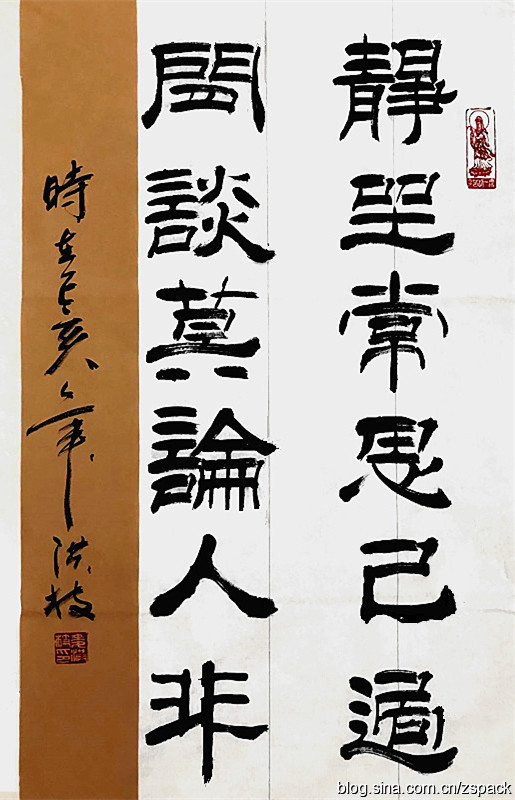 靜坐常思己過
閒談莫論人非
時在己亥年洪枝
blog.sina.com.cn/zspack